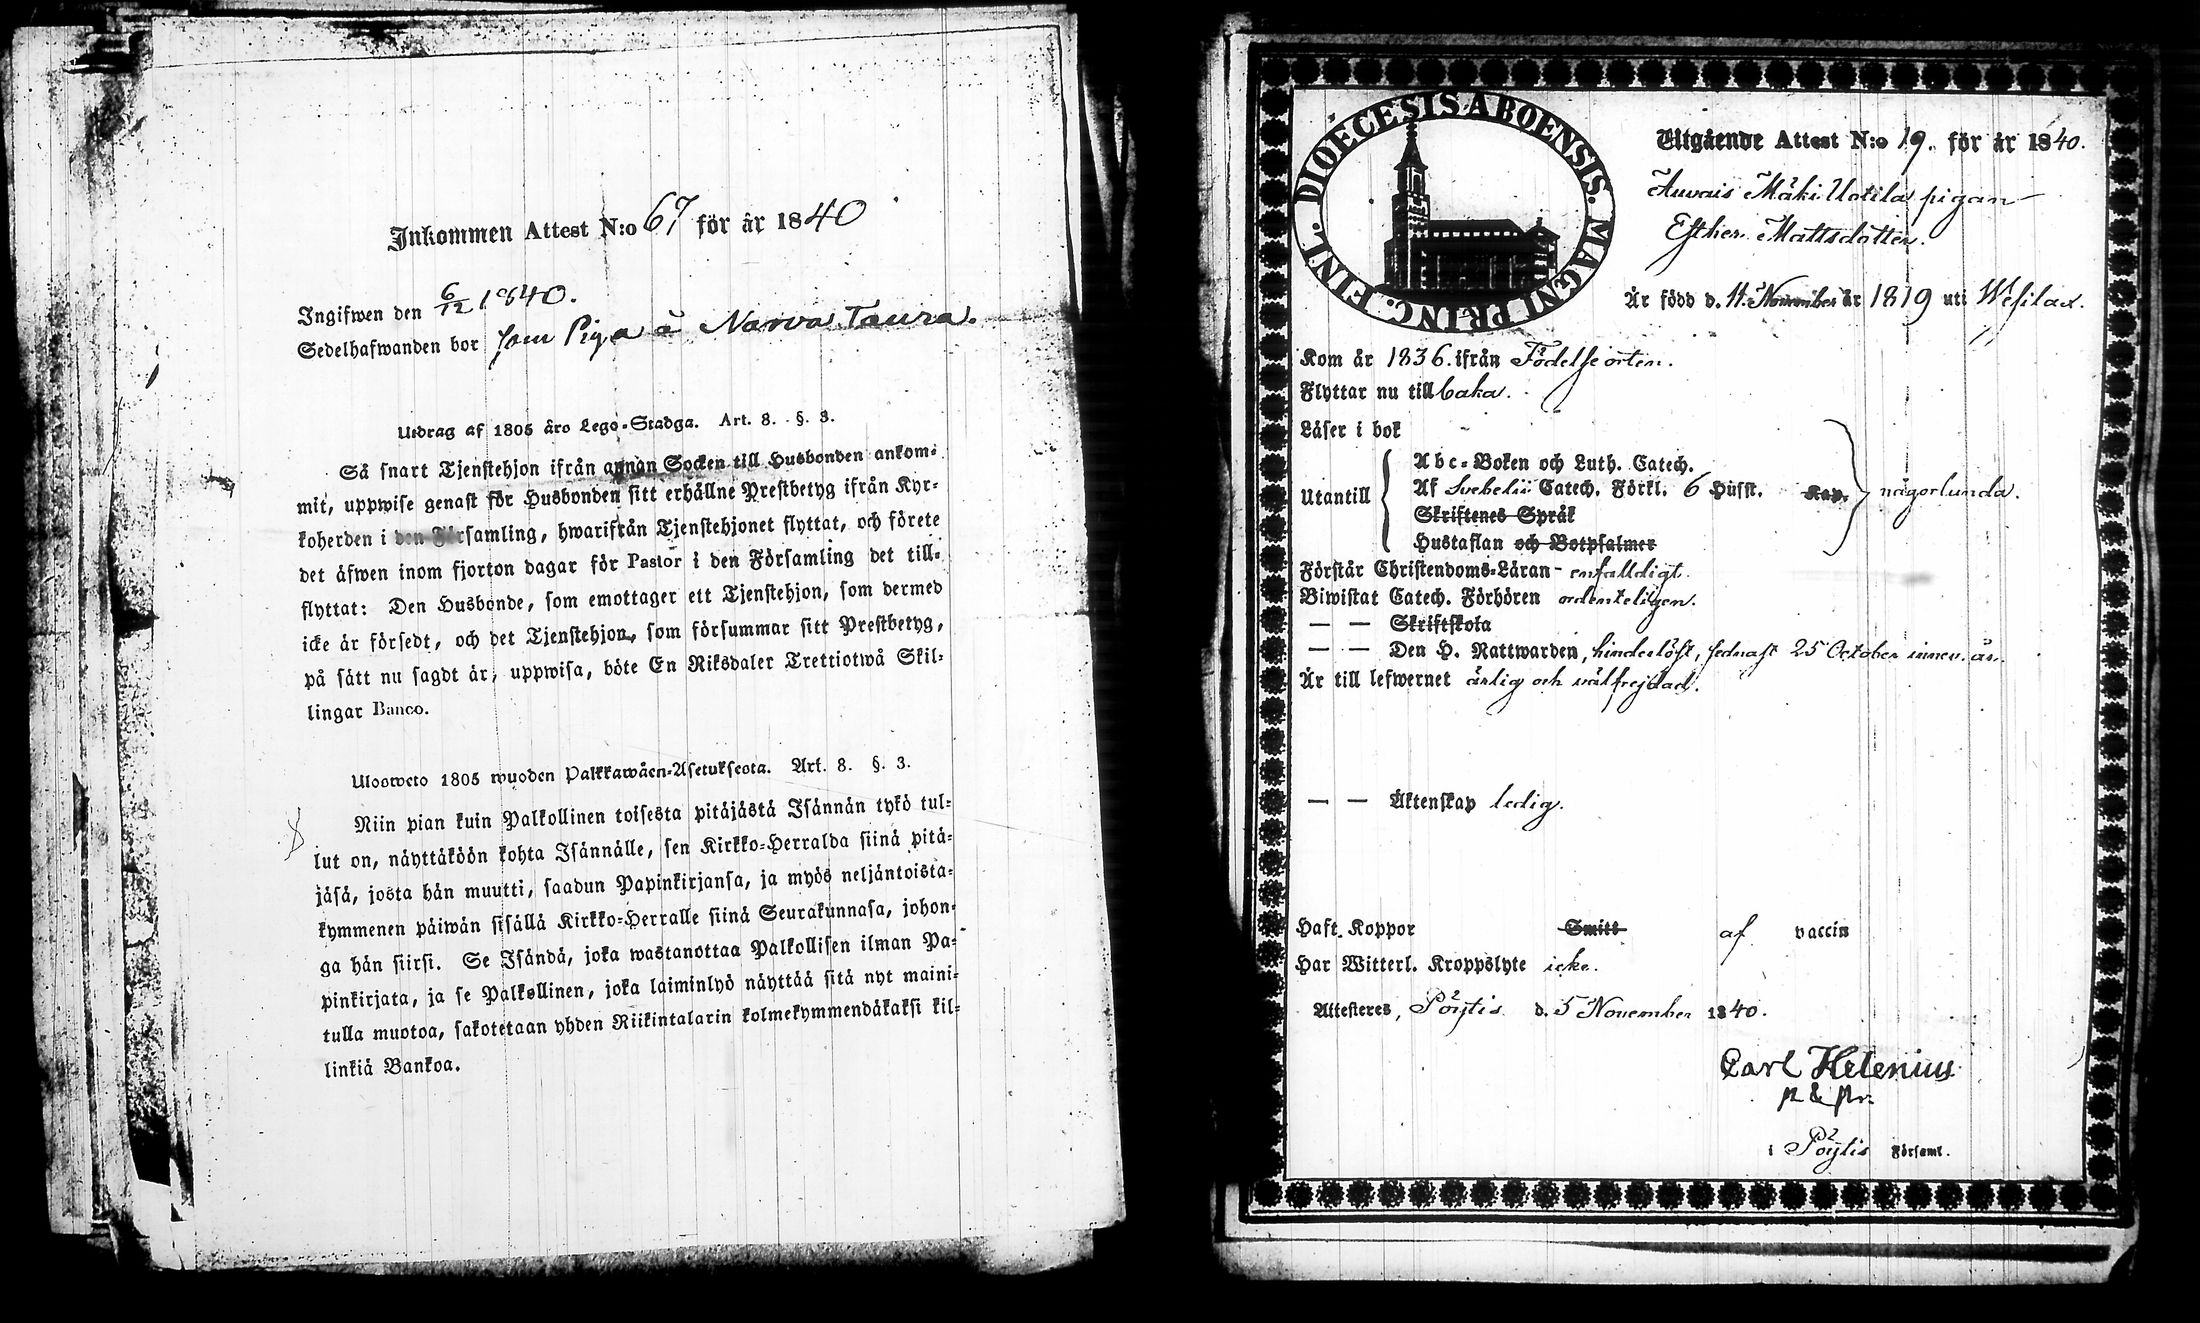 Inkommen Attest N:o 67 för år 1840
Ingifwen den 6/12 1840.
Sedelhafwanden bor som Piga å Narva Taura.
Utdrag af 1805 års Lego-Stadga. Art. 8. §. 3.
Så snart Tjenstehjon ifrån annan Socken till Husbonden ankom-
mit, uppwise genast för Husbonden sitt erhållne Prestbetyg ifrån Kyr-
koherden i den Församling, hwarifrån Tjenstehjonet flyttat, och förete
det äfwen inom fjorton dagar för Pastor i den Församling det till-
flyttat: Den Husbonde, som emottager ett Tjenstehjon, som dermed
icke är försedt, och det Tjenstehjon, som försummar sitt Prestbetyg,
på sätt nu sagdt är, uppwisa, böte En Riksdaler Trettiotwå Skil-
lingar Banco.
Ulosweto 1805 wuoden Palkkawäen-Asetuksesta. Art. 8. §. 3.
Niin pian kuin Palkollinen toisesta pitäjästä Isännän tykö tul-
lut on, näyttäköön kohta Isännälle, sen Kirkko-Herralda siinä pitä-
jäsä, josta hän muutti, saadun Papinkirjansa, ja myös neljäntoista-
kymmenen päiwän sisällä Kirkko-Herralle siinä Seurakunnasa, johon-
ga hän siirsi. Se Isändä, joka wastanottaa Palkollisen ilman Pa-
pinkirjata, ja se Palkollinen, joka laiminlyö näyttää sitä nyt maini-
tulla muotoa, sakotetaan yhden Riikintalarin kolmekymmendäkaksi kil-
linkiä Bankoa.
DIOECESIS ABOENSIS. MAGNI PRINC. FINL.
Utgående Attest N:o 19. för år 1840.
Auvais Mäki Uotila pigan
Esther Mattsdotter.
Är född d. 11. November år 1819 uti Wesilax.
Kom år 1836. ifrån Födelseorten.
Flyttar nu till baka.
Läser i bok
Abc-Boken och Luth. Catech.
Utantill Af Svebelii Catech. Förkl. 6 Hufst. Kap. någorlunda.
Skriftenes Språk
Hustaflan och Botpsalmer
Förstår Christendoms-Läran enfalldigt.
Biwistat Catech. Förhören ordenteligen.
— — Skriftskola
— — Den H. Nattwarden, hinderlöst, sednast 25 October innev. år.
Är till lefwernet ärlig och välfrejdad.
— — Äktenskap ledig.
Haft Koppor Smitt af vaccin
Har Witterl. Kroppslyte icke.
Attesteres, Pöytis d. 5 November 1840.
Carl Helenius
i Pöytis Församl.